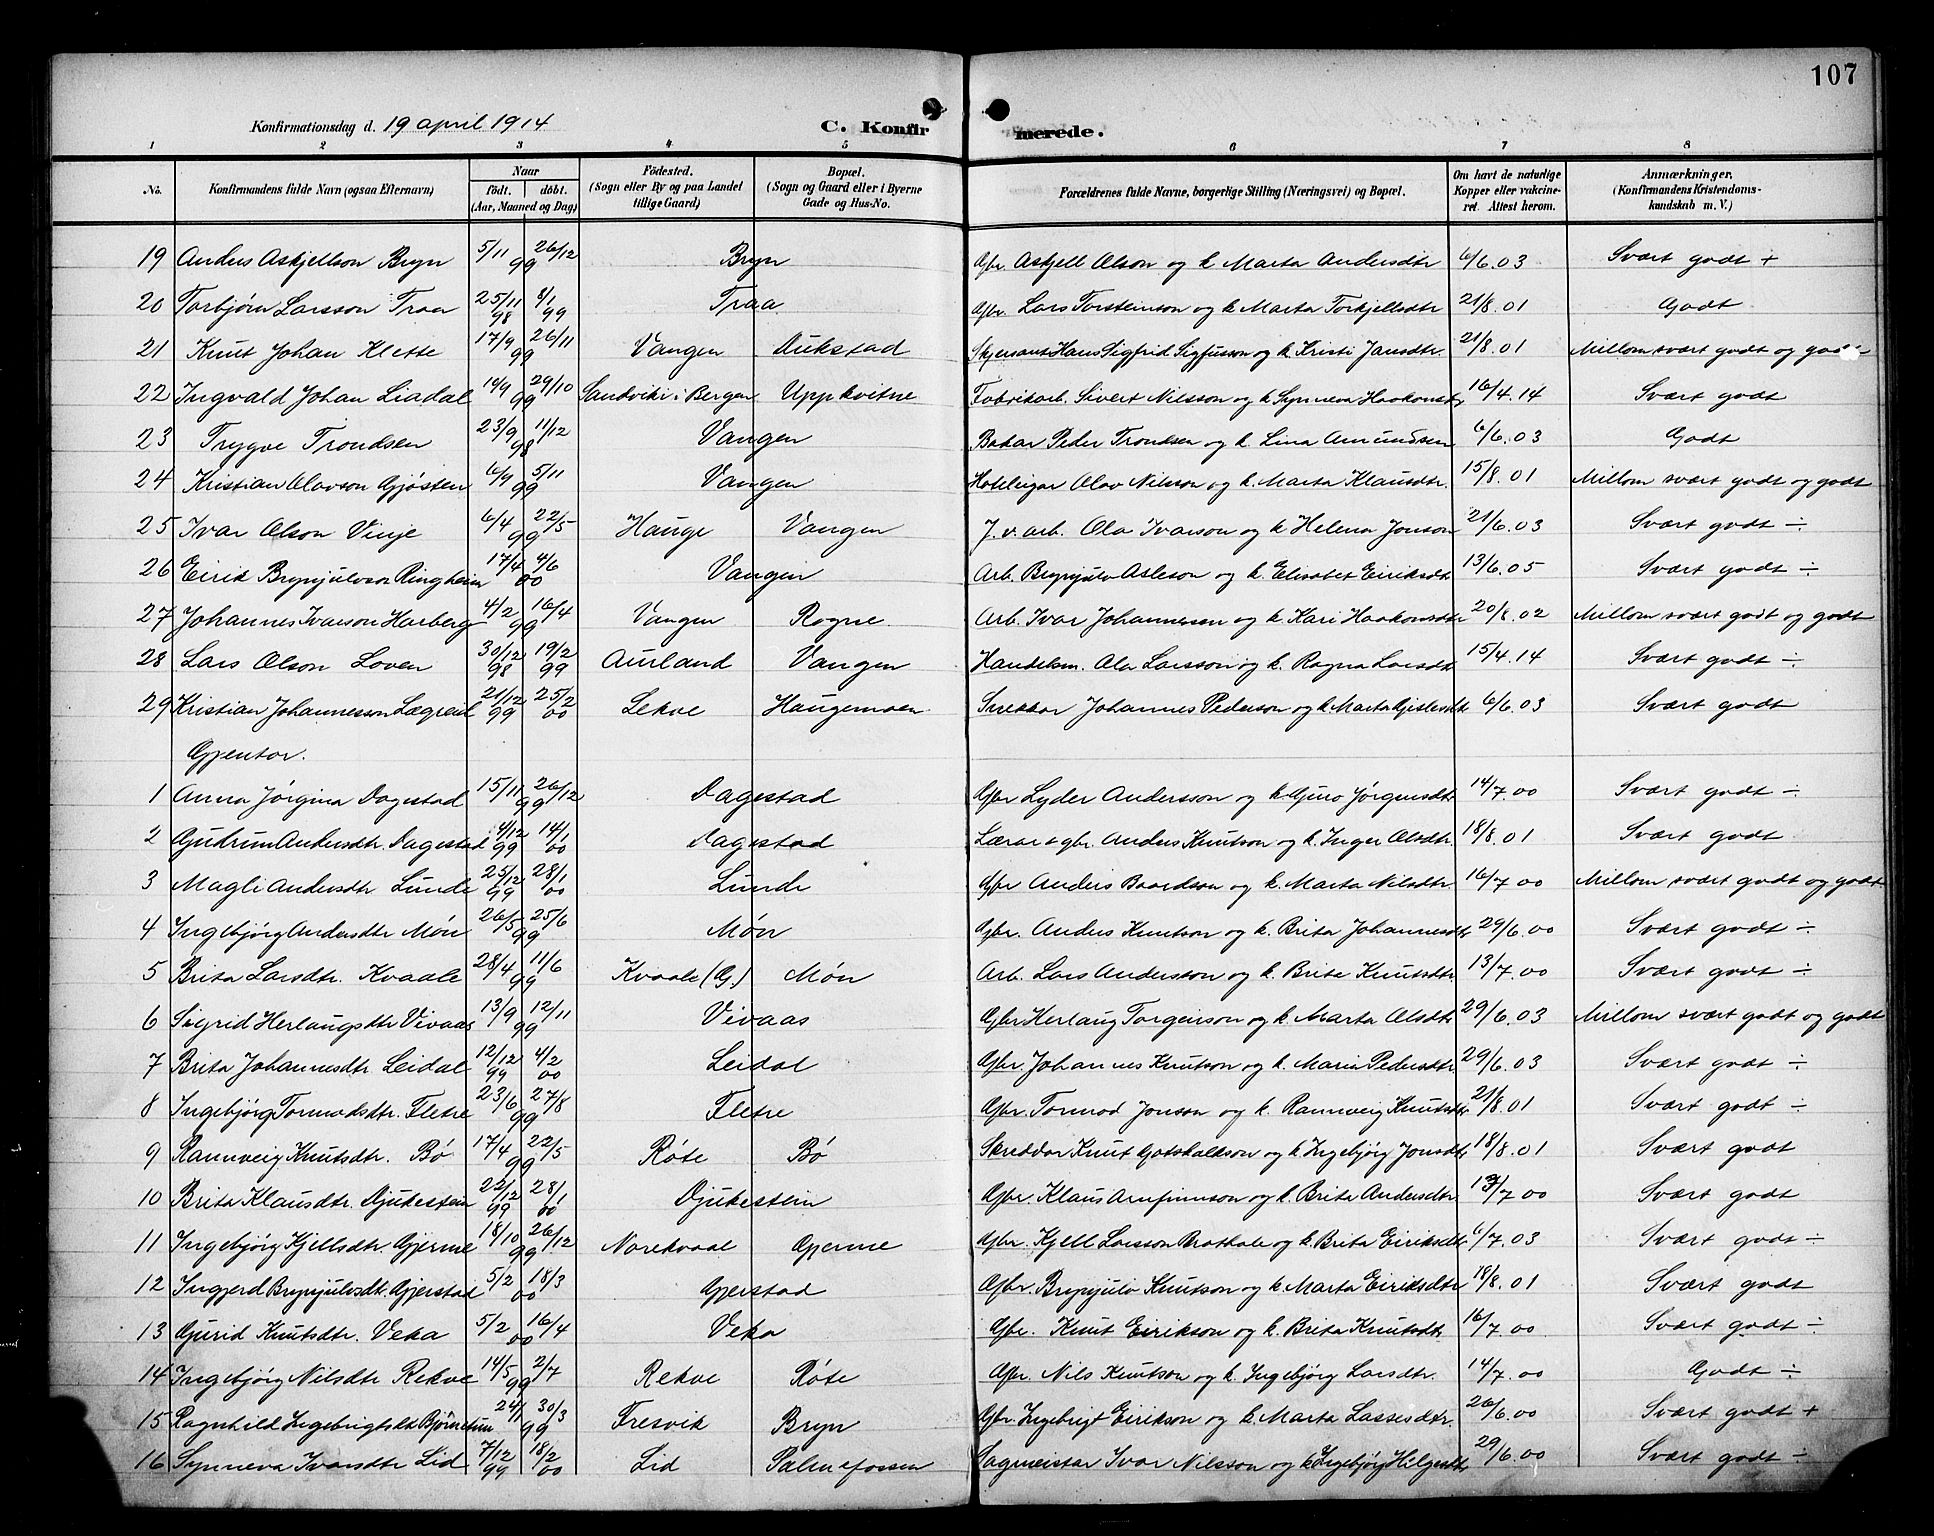 107
Konfirmationsdag d. 19 april 1914
C. Konfirmerede.
1 2 3 4 5 6 7 8
No. Konfirmandens fulde Navn (ogsaa Efternavn) Naar födt. döbt. (Aar, Maaned og Dag) Födested. (Sogn eller By og paa Landet tillige Gaard) Bopæl. (Sogn og Gaard eller i Byerne Gade og Hus-No. Forældrenes fulde Navne, borgerlige Stilling (Næringsvei) og Bopæl. Om havt de naturlige Kopper eller vakcineret. Attest herom. Anmærkninger. (Konfirmandens Kristendomskundskab m. V.)
19 Anders Askjellson Bryn 5/11 26/12 99 Bryn Gbr. Askjell Olson og k. Marta Andersdtr 6/6.03 Svært godt +
20 Torbjørn Larsson Traa 25/11 98 8/1 99 Traa Gbr. Lars Torsteinson og k. Marta Torkjellsdtr 21/8.01 Godt
21 Knut Johan Klette 17/9 26/11 99 Vangen Dukstad Skjersant Hans Sigfrid Sigfusson og k. Kristi Jansdtr. 21/8.01 Millom svært godt og godt
22 Ingvald Johan Liadal 10/9 29/10 99 Sandviki i Bergen Uppkvitne Fabrikarb. Sivert Nilsson og k. Synneva Haakonsdtr 16/4.14 Svært godt
23 Trygve Trondsen 23/9 11/12 98 Vangen Bakar Peder Trondsen og k. Lina Amundsen 6/6.03 Godt
24 Kristian Olavson Gjøstein 6/9 5/11 99 Vangen Hoteleigar Olav Nilsson og k. Marta Klausdtr. 15/8.01 Millom svært godt og godt
25 Ivar Olson Vinje 6/4 22/5 99 Hauge Vangen J.v. arb. Ola Ivarson og k. Helena Jonson 21/6.03 Svært godt ÷
26 Eirik Brynjulvson Ringheim 17/4 4/6 00 Vangen Arb. Brynjulv Asleson og k. Elisabet Eiriksdtr 13/6.05 Svært godt ÷
27 Johannes Ivarson Horberg 4/2 16/4 99 Vangen Rogne Arb. Ivar Johannesen og k. Kari Haakonsdtr 20/8.02 Millom svært godt og godt
28 Lars Olson Loven 30/12 98 19/2 99 Aurland Vangen Handelsm. Ola Larsson og k. Ragna Larsdtr 15/4.14 Svært godt ÷
29 Kristian Johannesson Lægreid 21/12 99 25/2 00 Lekve Haugamoen Snekkar Johannes Pederson og k. Marta Gjertsdtr 6/6.03 Svært godt
Gjentor.
1 Anna Jørgina Dagestad 15/11 26/12 99 Dagestad Gbr Lyder Andersson og k. Guro Jørgensdtr 14/7.00 Svært godt ÷
2 Gudrun Andersdtr. Dagestad 4/12 99 14/1 00 Dagestad Lærar & gbr. Anders Knutson og k. Inger Olsdtr. 18/8.01 Svært godt
3 Magli Andersdtr Lunde 25/12 99 28/1 00 Lunde Gbr Anders Baardson og k. Marta Nilsdtr. 16/7.00 Millom svært godt og godt
4 Ingebjørg Andersdtr Møn 26/5 25/6 99 Møn Gbr. Anders Knutson og k. Brita Johannesdtr 29/6.00 Svært godt ÷
5 Brita Larsdtr. Kvaale 28/4 11/6 99 Kvaale (G.) Møn Arb. Lars Andersson og k. Brita Knutsdtr. 13/7.00 Svært godt ÷
6 Sigrid Herlaugsdtr Vivaas 13/9 12/11 99 Vivaas Gbr Herlaug Torgerson og k. Marta Olsdtr 29/6.03 Millom svært godt og godt
7 Brita Johannesdtr Leidal 12/12 99 4/2 00 Leidal Gbr Johannes Knutson og k. Maria Pedersdtr. 29/6.03 Svært godt ÷
8 Ingebjørg Tormodsdtr. Fletre 23/6 27/8 99 Fletre Gbr. Tormod Jonson og k. Rannveig Knutsdtr 21/8.01 Svært godt ÷
9 Rannveig Knutsdtr. Bø 17/4 22/5 99 Røte Bø Skreddar Knut Gotskalkson og k. Ingebjørg Jonsdtr 18/8.01 Svært godt
10 Brita Klausdtr. Djukestein 22/12 99 28/1 00 Djukestein Gbr. Klaus Arnfinnson og k. Brita Andersdtr 13/7.00 Svært godt
11 Ingebjørg Kjellsdtr. Gjerme 18/10 26/12 99 Norekvaal Gjerme Gbr. Kjell Larsson Bratkole og k. Brita Eiriksdtr 6/7.03 Svært godt ÷
12 Ingjerd Brynjulvsdtr. Gjerstad 5/2 18/3 00 Gjerstad Gbr. Brynjulv Knutson og k. Marta Eiriksdtr 18/8.01 Svært godt
13 Gurid Knutsdtr. Veka 5/2 16/4 00 Veka Gbr. Knut Eirikson og k. Brita Knutsdtr 16/7.00 Svært godt ÷
14 Ingebjørg Nilsdtr Rekve 14/5 2/7 99 Rekve Røte Gbr. Nils Knutson og k. Ingebjørg Larsdtr. 14/7.00 Godt ÷
15 Ragnhild Ingebrigtsdtr Bjørnetun 24/1 30/3 99 Fresvik Bryn Gbr. Ingebrigt Eirikson og k. Marta Lassesdtr. 26/6.00 Svært godt +
16 Synneva Ivarsdtr Lid 7/12 99 18/2 00 Lid Palmafossen Sagmeistar Ivar Nilsson og k. Ingebjørg Helgesdtr 29/6.00 Svært godt ÷